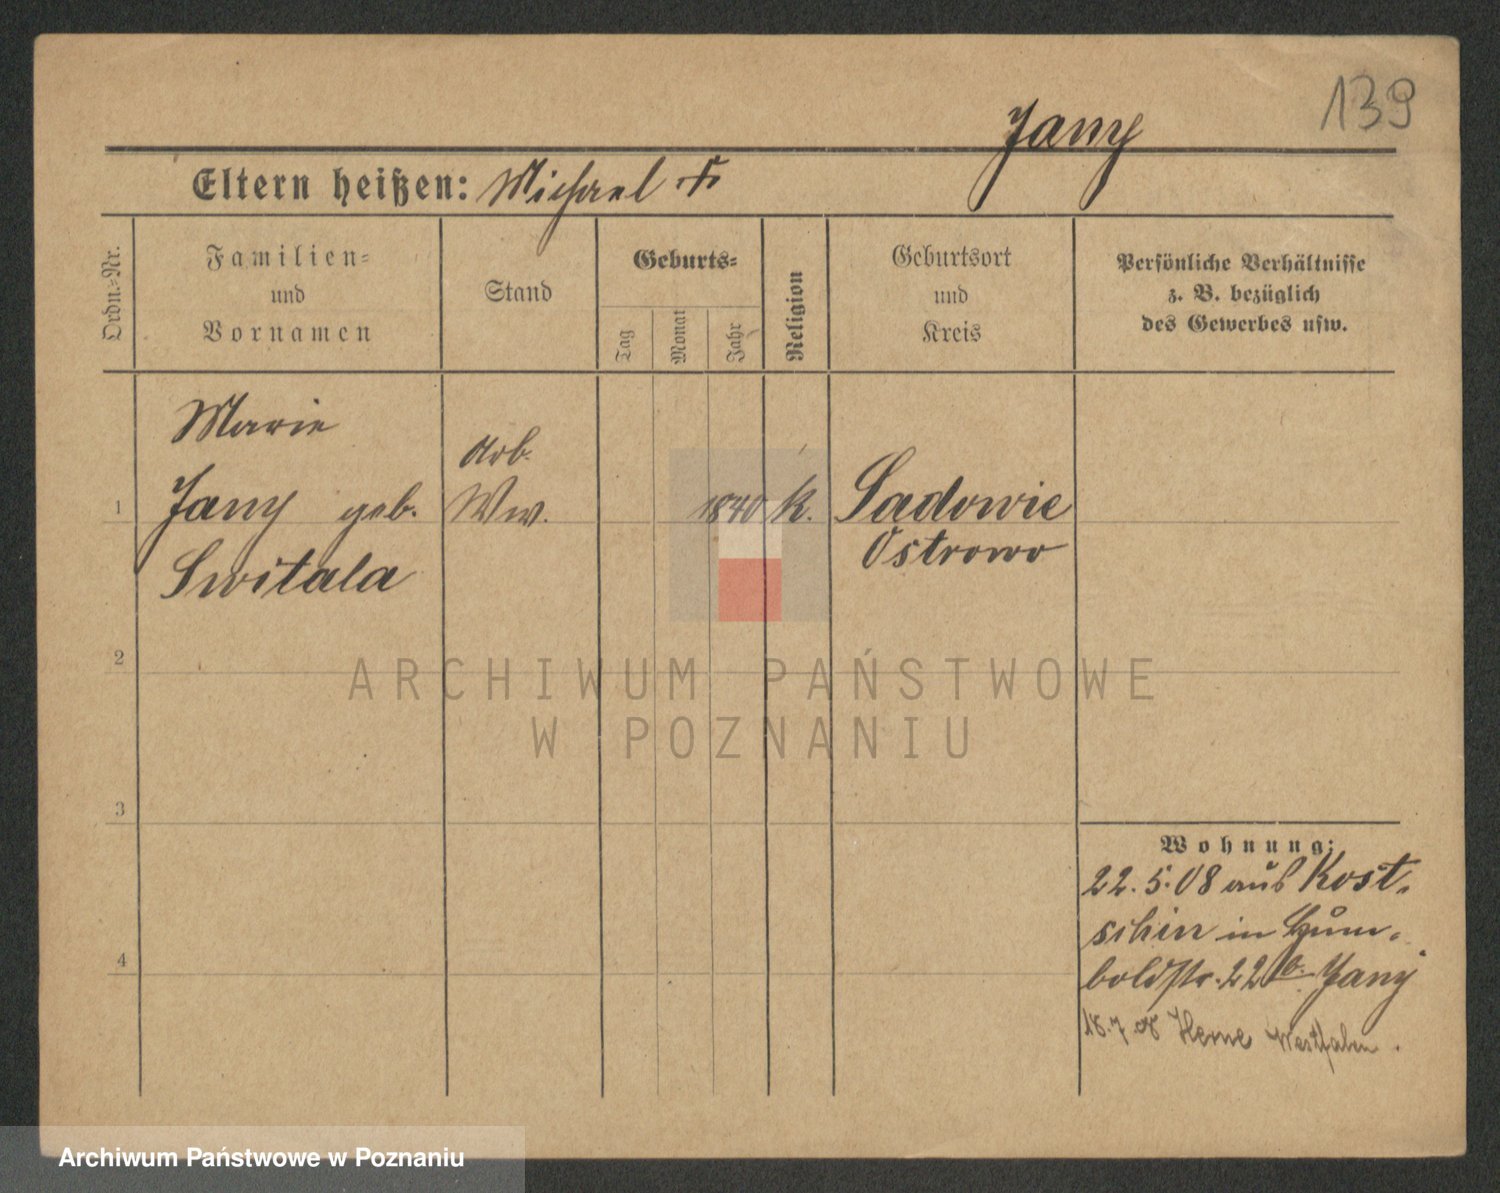 139
Jany
Eltern heißen: Michael †
Ordn.-Nr.
Familien-
und
Vornamen
Stand
Geburts-
Tag
Monat
Jahr
Religion
Geburtsort
und
Kreis
Persönliche Verhältnisse
z. B. bezüglich
des Gewerbes usw.
1
Marie
Jany geb.
Switala
Arb.
Ww.
1840
k.
Sadowie
Ostrowo
2
3
4
Wohnung:
22.5.08 aus Kost-
schin in Hum-
boldstr. 22b. Jany
18.7.08 Herne Westfalen.
ARCHIWUM PAŃSTWOWE
W POZNANIU
Archiwum Państwowe w Poznaniu